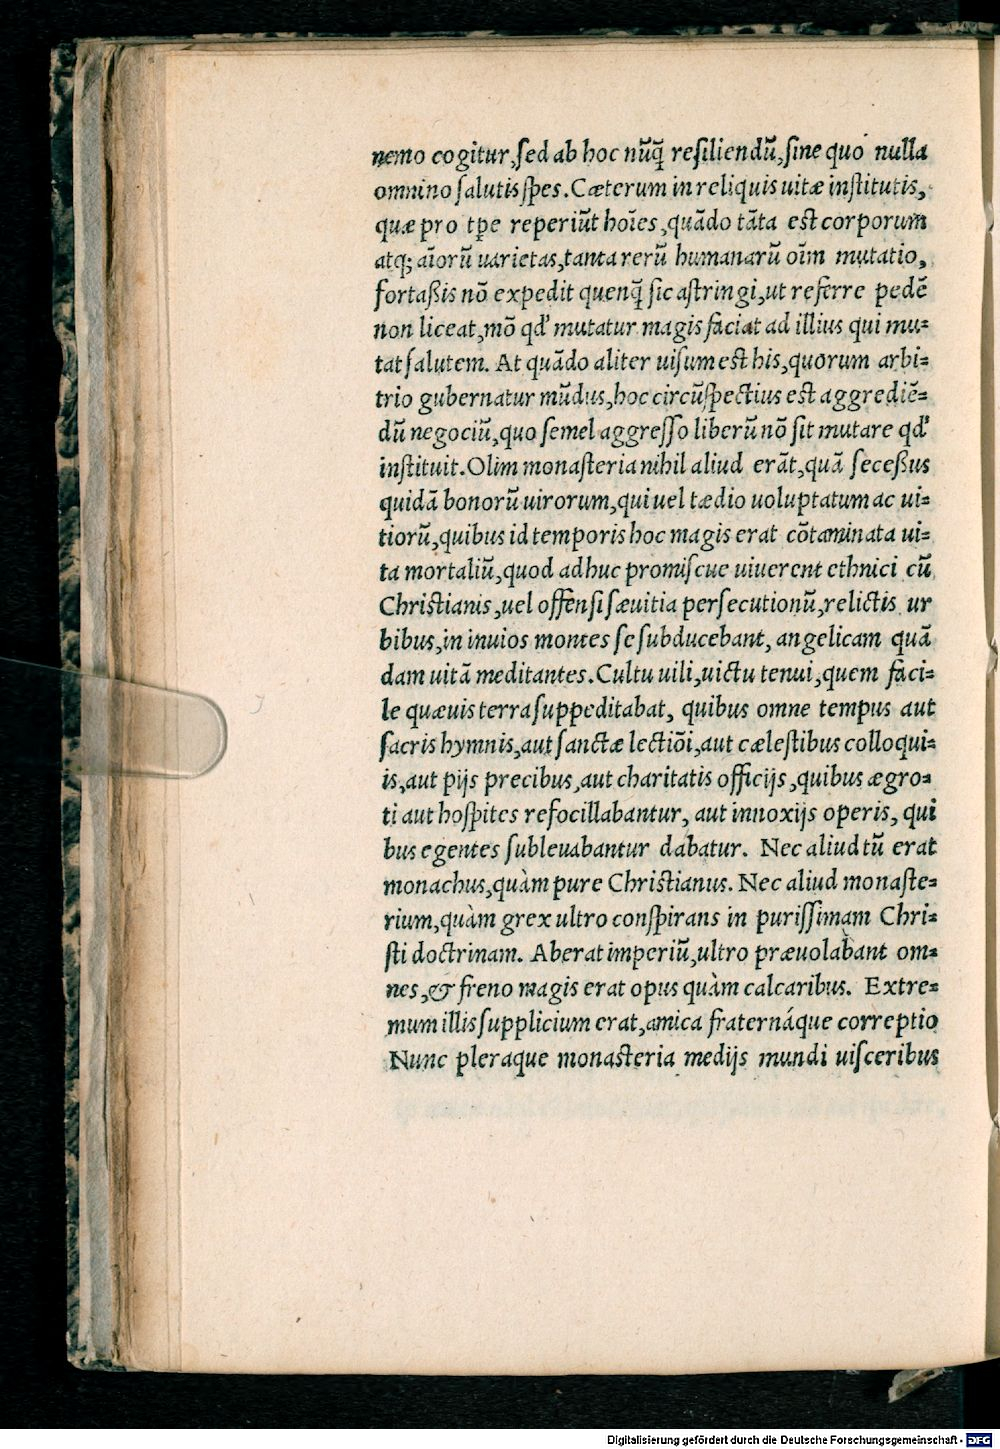 nemo cogitur,sed ab hoc nũq̃ resiliendũ,sine quo nulla
omnino salutis spes. Cæterum in reliquis uitæ institutis,
quæ pro tp̄e reperiũt hoīes,quãdo tãta est corporum
atq; aīorũ uarietas,tanta rerũ humanarũ oīm mutatio,
fortaßis nõ expedit quenq̃ sic astringi,ut referre pedẽ
non liceat,mõ qd' mutatur magis faciat ad illius qui mu=
tat salutem. At quãdo aliter uisum est his,quorum arbi=
trio gubernatur mũdus,hoc circũspectius est aggrediẽ=
dũ negociũ,quo semel aggresso liberũ nõ sit mutare qd'
instituit. Olim monasteria nihil aliud erãt,quã seceßus
quidã bonorũ uirorum,qui uel tædio uoluptatum ac ui=
tiorũ,quibus id temporis hoc magis erat cõtaminata ui=
ta mortaliũ,quod adhuc promiscue uiuerent ethnici cũ
Christianis,uel offensi sæuitia persecutionũ,relictis ur
bibus,in inuios montes se subducebant, angelicam quã
dam uitã meditantes. Cultu uili,uictu tenui,quem faci=
le quæuis terra suppeditabat, quibus omne tempus aut
sacris hymnis,aut sanctæ lectiõi,aut cælestibus colloqui=
is,aut pijs precibus,aut charitatis officijs,quibus ægro=
ti aut hospites refocillabantur, aut innoxijs operis, qui
bus egentes subleuabantur dabatur. Nec aliud tũ erat
monachus,quàm pure Christianus. Nec aliud monaste=
rium,quàm grex ultro conspirans in purissimam Chri=
sti doctrinam. Aberat imperiũ,ultro præuolabant om=
nes,& freno magis erat opus quàm calcaribus. Extre=
mum illis supplicium erat,amica fraternáque correptio
Nunc pleraque monasteria medijs mundi uisceribus
Digitalisierung gefördert durch die Deutsche Forschungsgemeinschaft - DFG